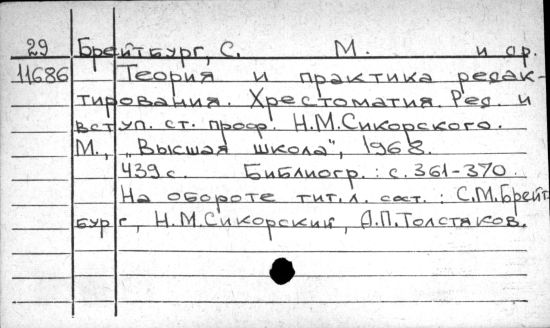 29 Брейтбург, С. М. и др.
11686 Теория и практика редак-
тирования. Хрестоматия. Ред. и
вступ. ст. проф. Н.М.Сикорского.
М., „Высшая школа", 1968.
439 с. Библиогр.: с. 361-370.
На обороте тит. л. сост.: С.М.Брейт-
бург, Н.М.Сикорский, А.П.Толстяков.